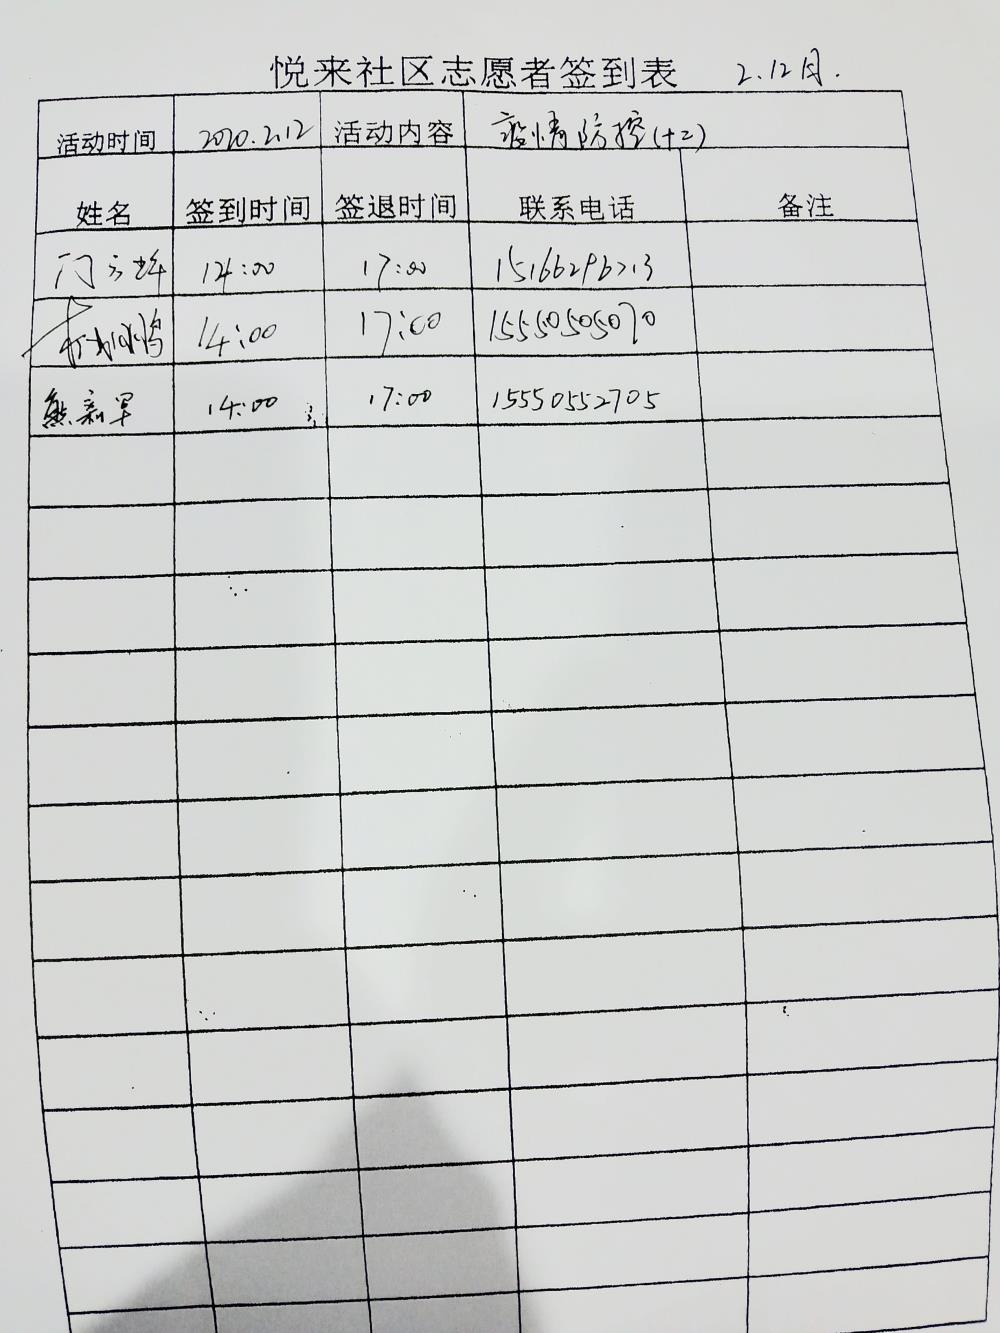 悦来社区志愿者签到表 2.12日.
活动时间 2020.2.12 活动内容 疫情防控(十二)
姓名 签到时间 签退时间 联系电话 备注
门 14:00 17:00
14:00 17:00 15550505070
熊新军 14:00 17:00 15550552705